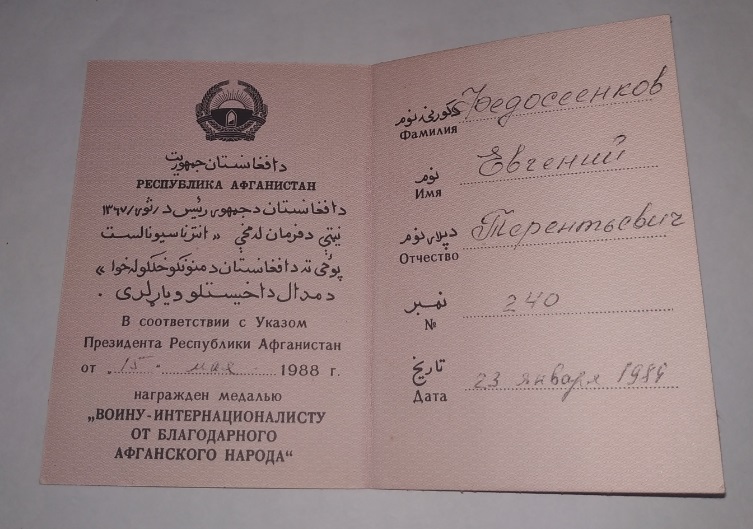 دافغانستان جمهوریت
РЕСПУБЛИКА АФГАНИСТАН
دافغانستان دجمهوری رئیس د /ثور/ ۱۳۶۷
نیټې دفرمان له مخې « انترناسیونالست
پوځي ته دافغانستان دمننوکوخلکولخوا »
دمدال داخیستلو ویاړلری .
В соответствии с Указом
Президента Республики Афганистан
от „ 15 " мая 1988 г.
награжден медалью
„ВОИНУ-ИНТЕРНАЦИОНАЛИСТУ
ОТ БЛАГОДАРНОГО
АФГАНСКОГО НАРОДА“
دکورنۍ نوم Федосеенков
Фамилия
نوم Евгений
Имя
دپلار نوم Терентьевич
Отчество
نمبر 240
№
تاریخ 23 января 1989
Дата